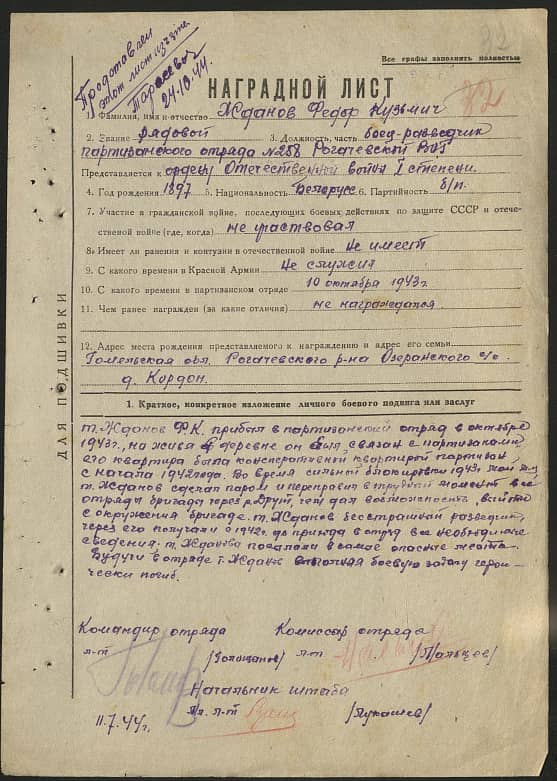 Все графы заполнить полностью
24.10.44.
НАГРАДНОЙ ЛИСТ
1. Фамилия, имя и отчество Жданов Федор Кузьмич
2. Звание рядовой 3. Должность, часть боец-разведчик
партизанского отряда №258 Рогачевской
Представляется к ордену Отечественной войны I степени.
4. Год рождения 1897 5. Национальность Белорусс 6. Партийность б/п.
7. Участие в гражданской войне, последующих боевых действиях по защите СССР и отече-
ственной войне (где, когда) не участвовал
8. Имеет ли ранения и контузии в отечественной войне Не имеет
9. С какого времени в Красной Армии Не служил
10. С какого времени в партизанском отряде 10 октября 1943 г.
11. Чем ранее награжден (за какие отличия) не награждался
12. Адрес места рождения представляемого к награждению и адрес его семьи
Гомельская обл. Рогачевского р-на Озеранского с/с.
д. Кордон.
ДЛЯ ПОДШИВКИ
1. Краткое, конкретное изложение личного боевого подвига или заслуг
т. Жданов Ф.К. прибыл в партизанский отряд в октябре
1943 г., но живя в деревне он был связан с партизанами
его квартира была квартирой партизан
с начала 1942 года. Во время сильной блокировки 1943
т. Жданов сделал паром и переправил в трудный момент все
отряды бригады через р. Друть, чем дал возможность выйти
с окружения бригаде. т. Жданов бесстрашный разведчик,
через его получали с 1942 г. до прихода в отряд все необходимые
сведения. т. Жданова посылали в самые опасные места.
Будучи в отряде т. Жданов выполняя боевую задачу герои-
чески погиб.
Командир отряда Комиссар отряда
л-т л-т /Мальцев/
Начальник штаба
мл. л-т /Лукашев/
11.7.44 г.